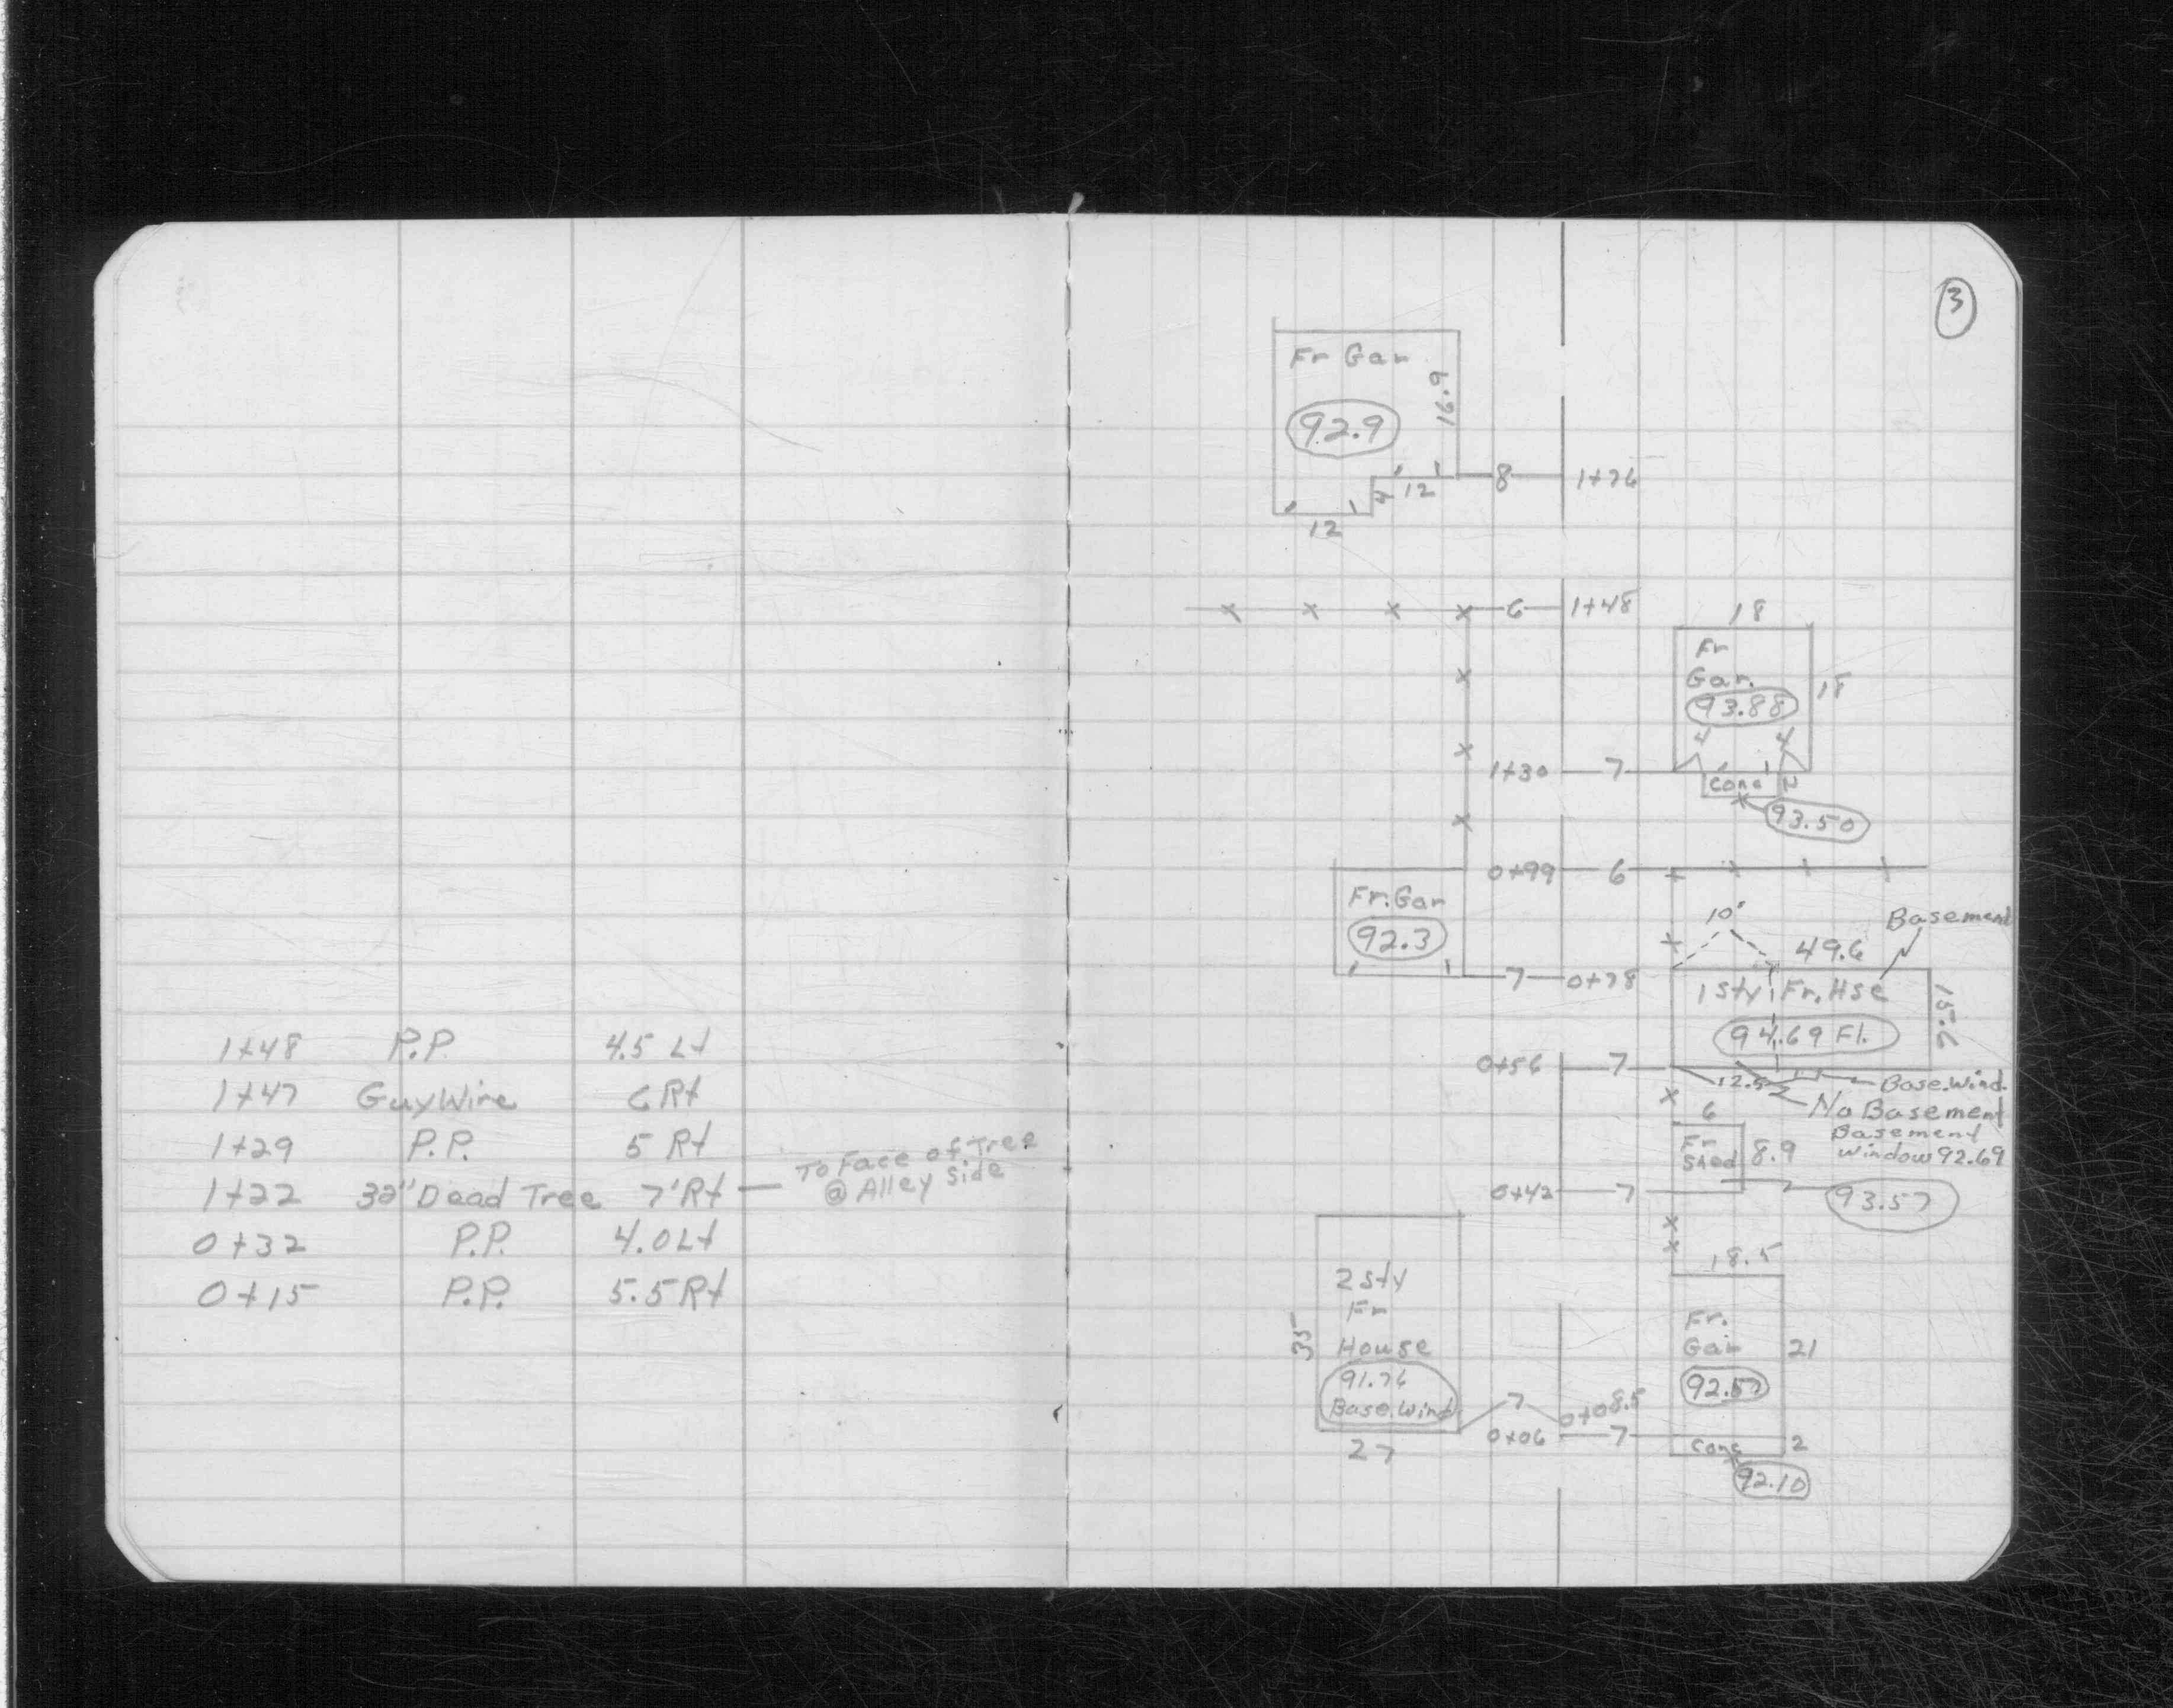 1+48 P.P. 4.5 Lt
1+47 Guy Wire 6 Rt
1+29 P.P. 5 Rt
1+22 32" Dead Tree 7' Rt — To Face of Tree
@ Alley Side
0+32 P.P. 4.0 Lt
0+15 P.P. 5.5 Rt
3
Fr Gar
16.9
92.9
8 1+76
4 12
12
6 1+48
18
Fr
Gar.
18
93.88
4 4
1+30 7
Conc 2
93.50
0+99 6
Fr. Gar
92.3
7 0+78
10'
Basement
49.6
1 Sty Fr. Hse
94.69 Fl.
0+56 7
12.5
Base. Wind.
No Basement
Basement
Window 92.69
6
Fr
Shed
8.9
0+42 7
93.57
18.5
2 sty
Fr
House
35
91.76
Base. Wind
27
7 0+08.5
0+06 7
Fr.
Gar
21
92.57
Conc 2
92.10